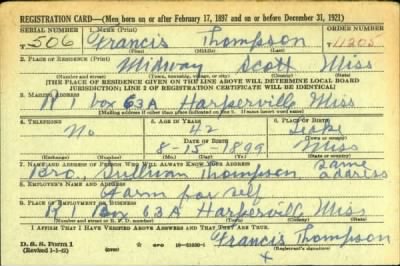 REGISTRATION CARD—(Men born on or after February 17, 1897 and on or before December 31, 1921)
SERIAL NUMBER 1. NAME (Print) ORDER NUMBER
T 506 Francis Thompson T11205
(First) (Middle) (Last)
2. PLACE OF RESIDENCE (Print)
Midway Scott Miss
(Number and street) (Town, township, village, or city) (County) (State)
[THE PLACE OF RESIDENCE GIVEN ON THE LINE ABOVE WILL DETERMINE LOCAL BOARD
JURISDICTION; LINE 2 OF REGISTRATION CERTIFICATE WILL BE IDENTICAL]
3. MAILING ADDRESS
R 1 Box 63A Harperville Miss
[Mailing address if other than place indicated on line 2. If same insert word same]
4. TELEPHONE 5. AGE IN YEARS 6. PLACE OF BIRTH
No 42 Leake
DATE OF BIRTH (Town or county)
8-15-1899 Miss
(Exchange) (Number) (Mo.) (Day) (Yr.) (State or country)
7. NAME AND ADDRESS OF PERSON WHO WILL ALWAYS KNOW YOUR ADDRESS
Bro. Sullivan Thompson same address
8. EMPLOYER'S NAME AND ADDRESS
Farm for self
9. PLACE OF EMPLOYMENT OR BUSINESS
R 1 Box 63A Harperville Miss
(Number and street or R. F. D. number) (Town) (County) (State)
I AFFIRM THAT I HAVE VERIFIED ABOVE ANSWERS AND THAT THEY ARE TRUE.
D. S. S. Form 1
(Revised 1-1-42) (over) GPO Francis Thompson
(Registrant's signature)
X